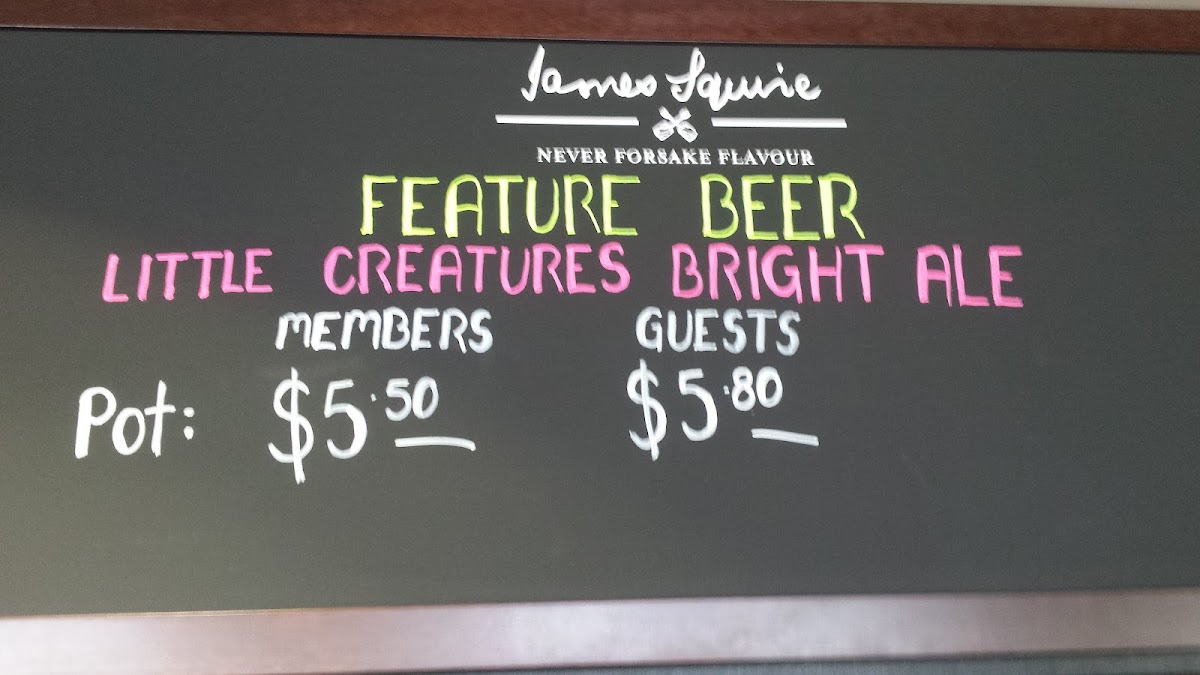 James Squire
NEVER FORSAKE FLAVOUR
FEATURE BEER
LITTLE CREATURES BRIGHT ALE
MEMBERS GUESTS
Pot: $5.50 $5.80